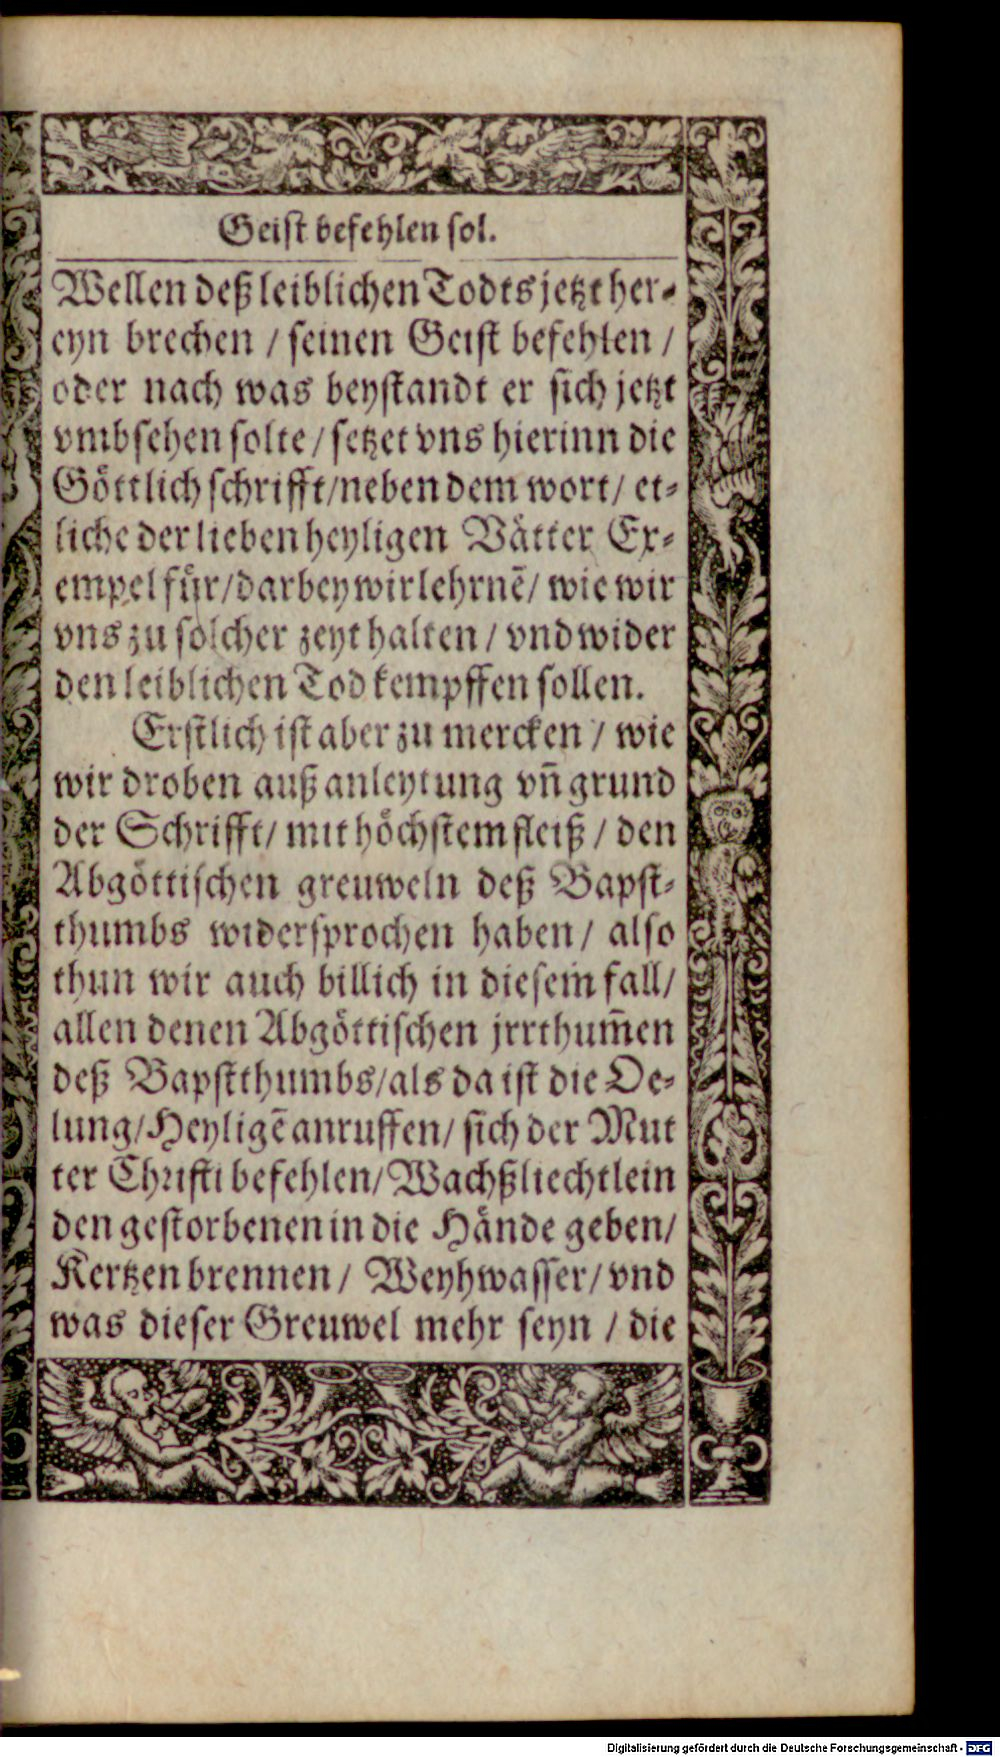 Geist befehlen sol.
Wellen deß leiblichen Todts jetzt her-
eyn brechen / seinen Geist befehlen /
oder nach was beystandt er sich jetzt
vmbsehen solte / setzet vns hierinn die
Göttlich schrifft / neben dem wort / et-
liche der lieben heyligen Vätter Ex-
empel für / darbey wir lehrnẽ / wie wir
vns zu solcher zeyt halten / vnd wider
den leiblichen Tod kempffen sollen.
Erstlich ist aber zu mercken / wie
wir droben auß anleytung vñ grund
der Schrifft / mit höchstem fleiß / den
Abgöttischen greuweln deß Bapst-
thumbs widersprochen haben / also
thun wir auch billich in diesem fall /
allen denen Abgöttischen jrrthum̃en
deß Bapstthumbs / als da ist die Oe-
lung / Heyligẽ anruffen / sich der Mut
ter Christi befehlen / Wachßliechtlein
den gestorbenen in die Hände geben /
Kertzen brennen / Weyhwasser / vnd
was dieser Greuwel mehr seyn / die
Digitalisierung gefördert durch die Deutsche Forschungsgemeinschaft - DFG